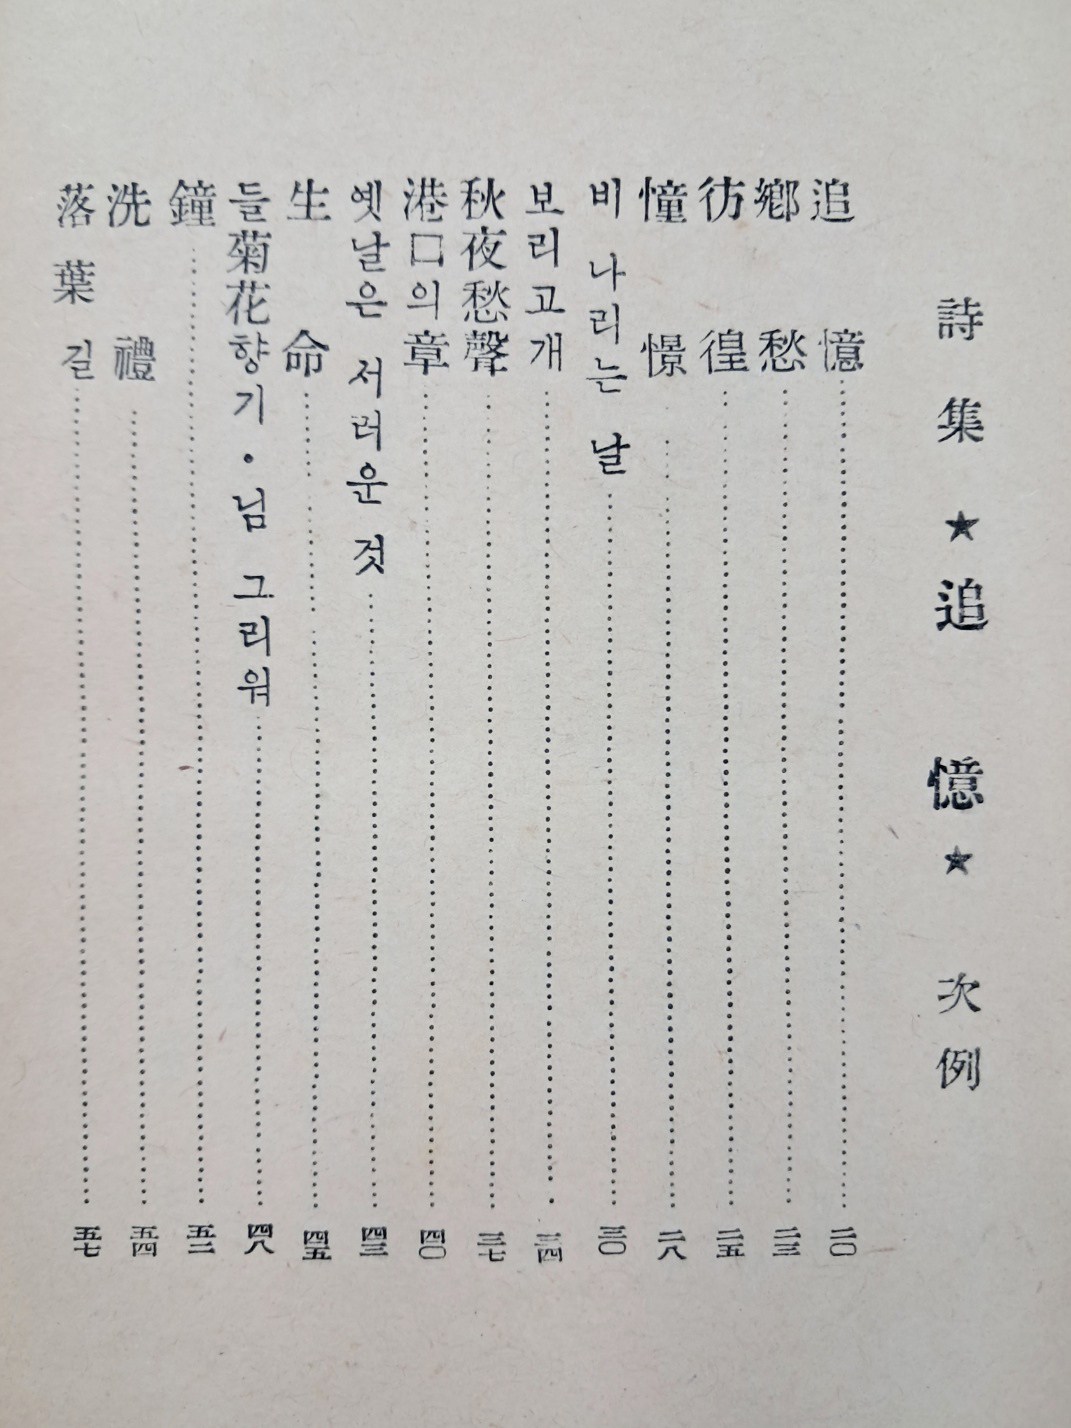 詩集★追憶★ 次例
追憶……二〇
鄕愁……二三
彷徨……二五
憧憬……二八
비 나리는 날……三〇
보리고개……三四
秋夜愁聲……三七
港口의 章……四〇
옛날은 서러운 것……四三
生命……四五
들菊花향기・님 그리워……四八
鐘……五二
洗禮……五四
落葉길……五七